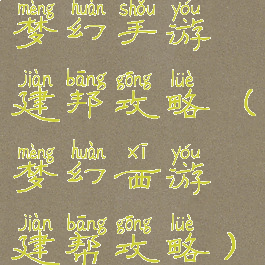 mèng huàn shǒu yóu
梦幻手游
jiàn bāng gōng lüè
建邦攻略（
mèng huàn xī yóu
梦幻西游
jiàn bāng gōng lüè
建帮攻略）